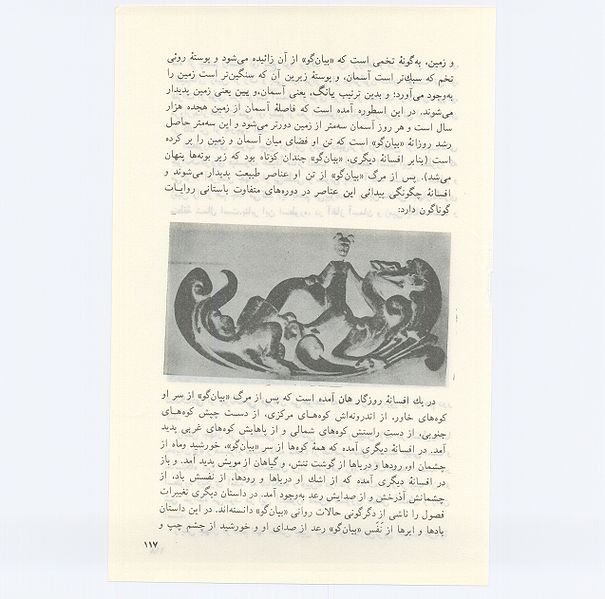 و زمین، به‌گونهٔ تخمی است که «بیان‌گو» از آن زائیده می‌شود و پوستهٔ روئی
تخم که سبك‌تر است آسمان، و پوستهٔ زیرین آن که سنگین‌تر است زمین را
به‌وجود می‌آورد؛ و بدین ترتیب یانگ، یعنی آسمان، و یین یعنی زمین پدیدار
می‌شوند. در این اسطوره آمده است که فاصلهٔ آسمان از زمین هجده هزار
سال است و هر روز آسمان سه‌متر از زمین دورتر می‌شود و این سه‌متر حاصل
رشد روزانهٔ «بیان‌گو» است که تن او فضای میان آسمان و زمین را پر کرده
است (بنابر افسانهٔ دیگری، «بیان‌گو» چندان کوتاه بود که زیر بوته‌ها پنهان
می‌شد). پس از مرگ «بیان‌گو» از تن او عناصر طبیعت پدیدار می‌شوند و
افسانهٔ چگونگی پیدائی این عناصر در دوره‌های متفاوت باستانی روایـات
گوناگون دارد:
در یك افسانهٔ روزگار هان آمده است که پس از مرگ «بیان‌گو» از سر او
کوه‌های خاور، از اندرونه‌اش کوه‌هـای مرکزی، از دسـت چپش کوه‌هـای
جنوبی، از دست راستش کوه‌های شمالی و از پاهایش کوه‌های غربی پدید
آمد. در افسانهٔ دیگری آمده که همهٔ کوه‌ها از سر «بیان‌گو»، خورشید وماه از
چشمان او، رودها و دریاها از گوشت تنش، و گیاهان از مویش پدید آمد. و باز
در افسانهٔ دیگری آمده که از اشك او دریاها و رودها، از نفسش باد، از
چشمانش آذرخش و از صدایش رعد به‌وجود آمد. در داستان دیگری تغییرات
فصول را ناشی از دگرگونی حالات روانی «بیان‌گو» دانسته‌اند. در این داستان
بادها و ابرها از نَفَس «بیان‌گو» رعد از صدای او و خورشید از چشم چپ و
۱۱۷